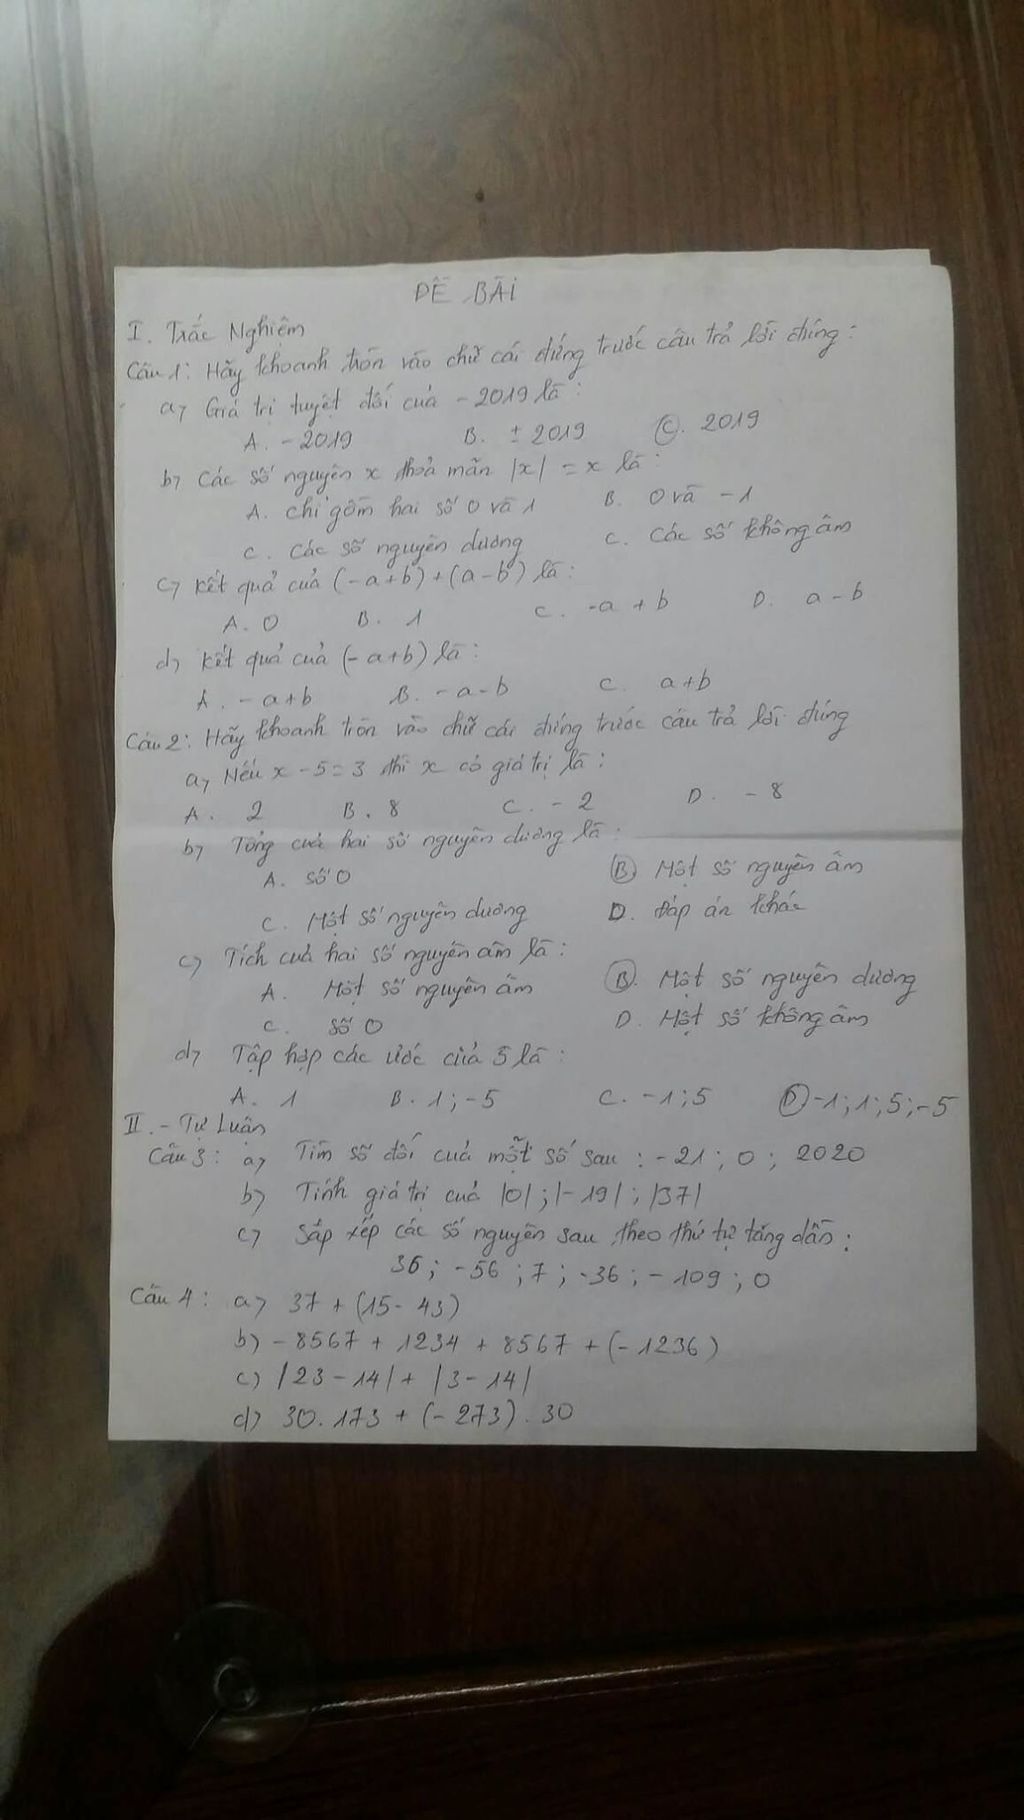 ĐỀ BÀI
I. Trắc Nghiệm
Câu 1: Hãy khoanh tròn vào chữ cái đứng trước câu trả lời đúng:
a, Giá trị tuyệt đối của -2019 là:
A. -2019 B. ±2019 C. 2019
b, Các số nguyên x thoả mãn |x| = x là:
A. chỉ gồm hai số 0 và 1 B. 0 và -1
C. Các số nguyên dương C. Các số không âm
c, Kết quả của (-a+b)+(a-b) là:
A. 0 B. 1 C. -a + b D. a - b
d, Kết quả của (-a+b) là:
A. -a+b B. -a-b C. a+b
Câu 2: Hãy khoanh tròn vào chữ cái đứng trước câu trả lời đúng
a, Nếu x - 5 = 3 thì x có giá trị là:
A. 2 B. 8 C. -2 D. -8
b, Tổng của hai số nguyên dương là:
A. số 0 B. Một số nguyên âm
C. Một số nguyên dương D. Đáp án khác
c, Tích của hai số nguyên âm là:
A. Một số nguyên âm B. Một số nguyên dương
C. số 0 D. Một số không âm
d, Tập hợp các ước của 5 là:
A. 1 B. 1; -5 C. -1; 5 D -1; 1; 5; -5
II. - Tự Luận
Câu 3: a, Tìm số đối của mỗi số sau: -21; 0; 2020
b, Tính giá trị của |0|; |-19|; |37|
c, Sắp xếp các số nguyên sau theo thứ tự tăng dần:
36; -56; 7; -36; -109; 0
Câu 4: a, 37 + (15 - 43)
b) -8567 + 1234 + 8567 + (-1236)
c) |23 - 14| + |3 - 14|
d, 30.173 + (-273).30